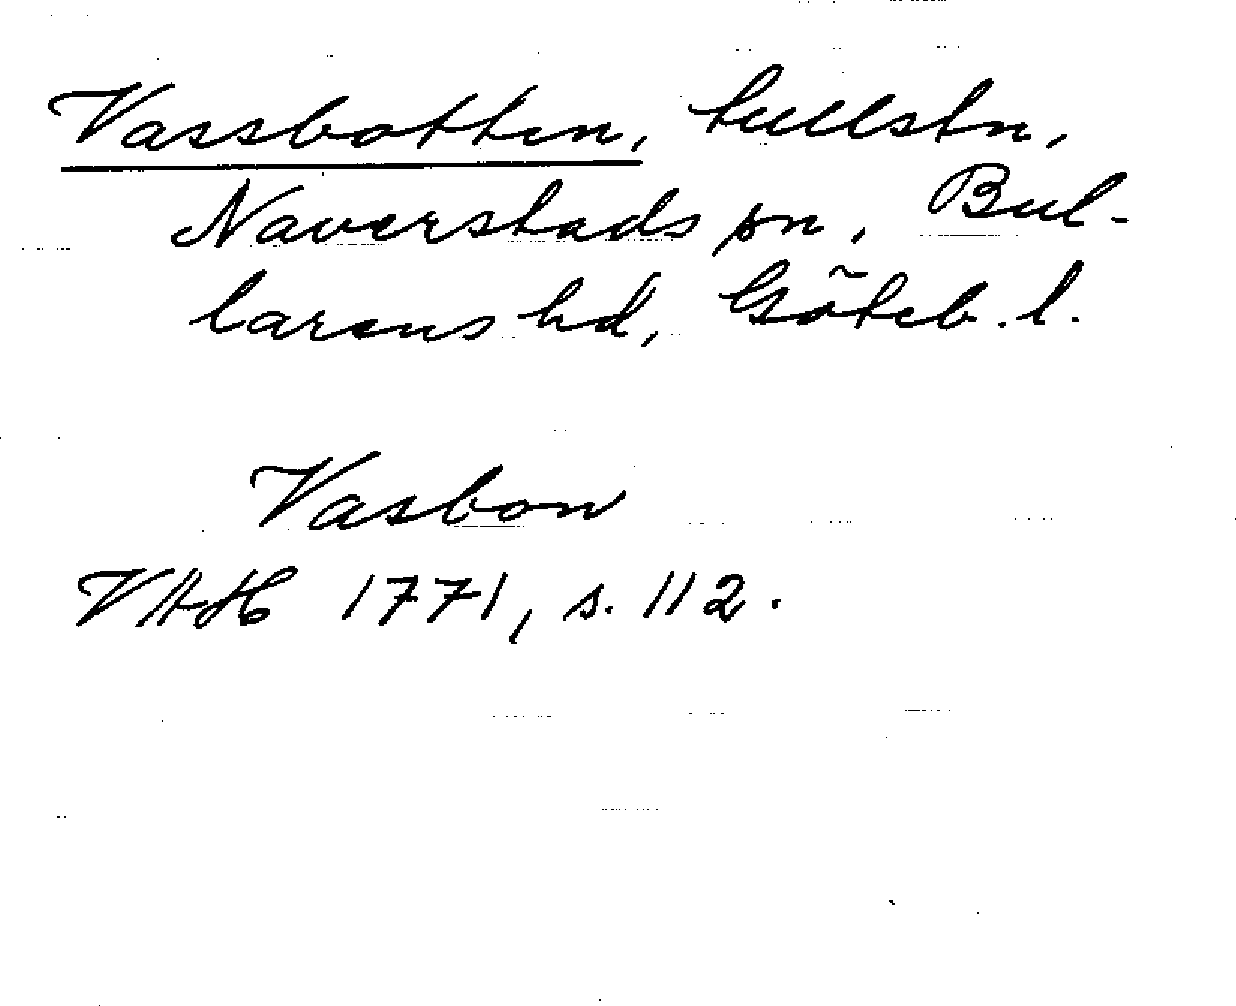 Vassbotten, tullstn,
Naverstads sn, Bul-
larens hd, Göteb. l.
Vasbon
VAH 1771, s. 112.